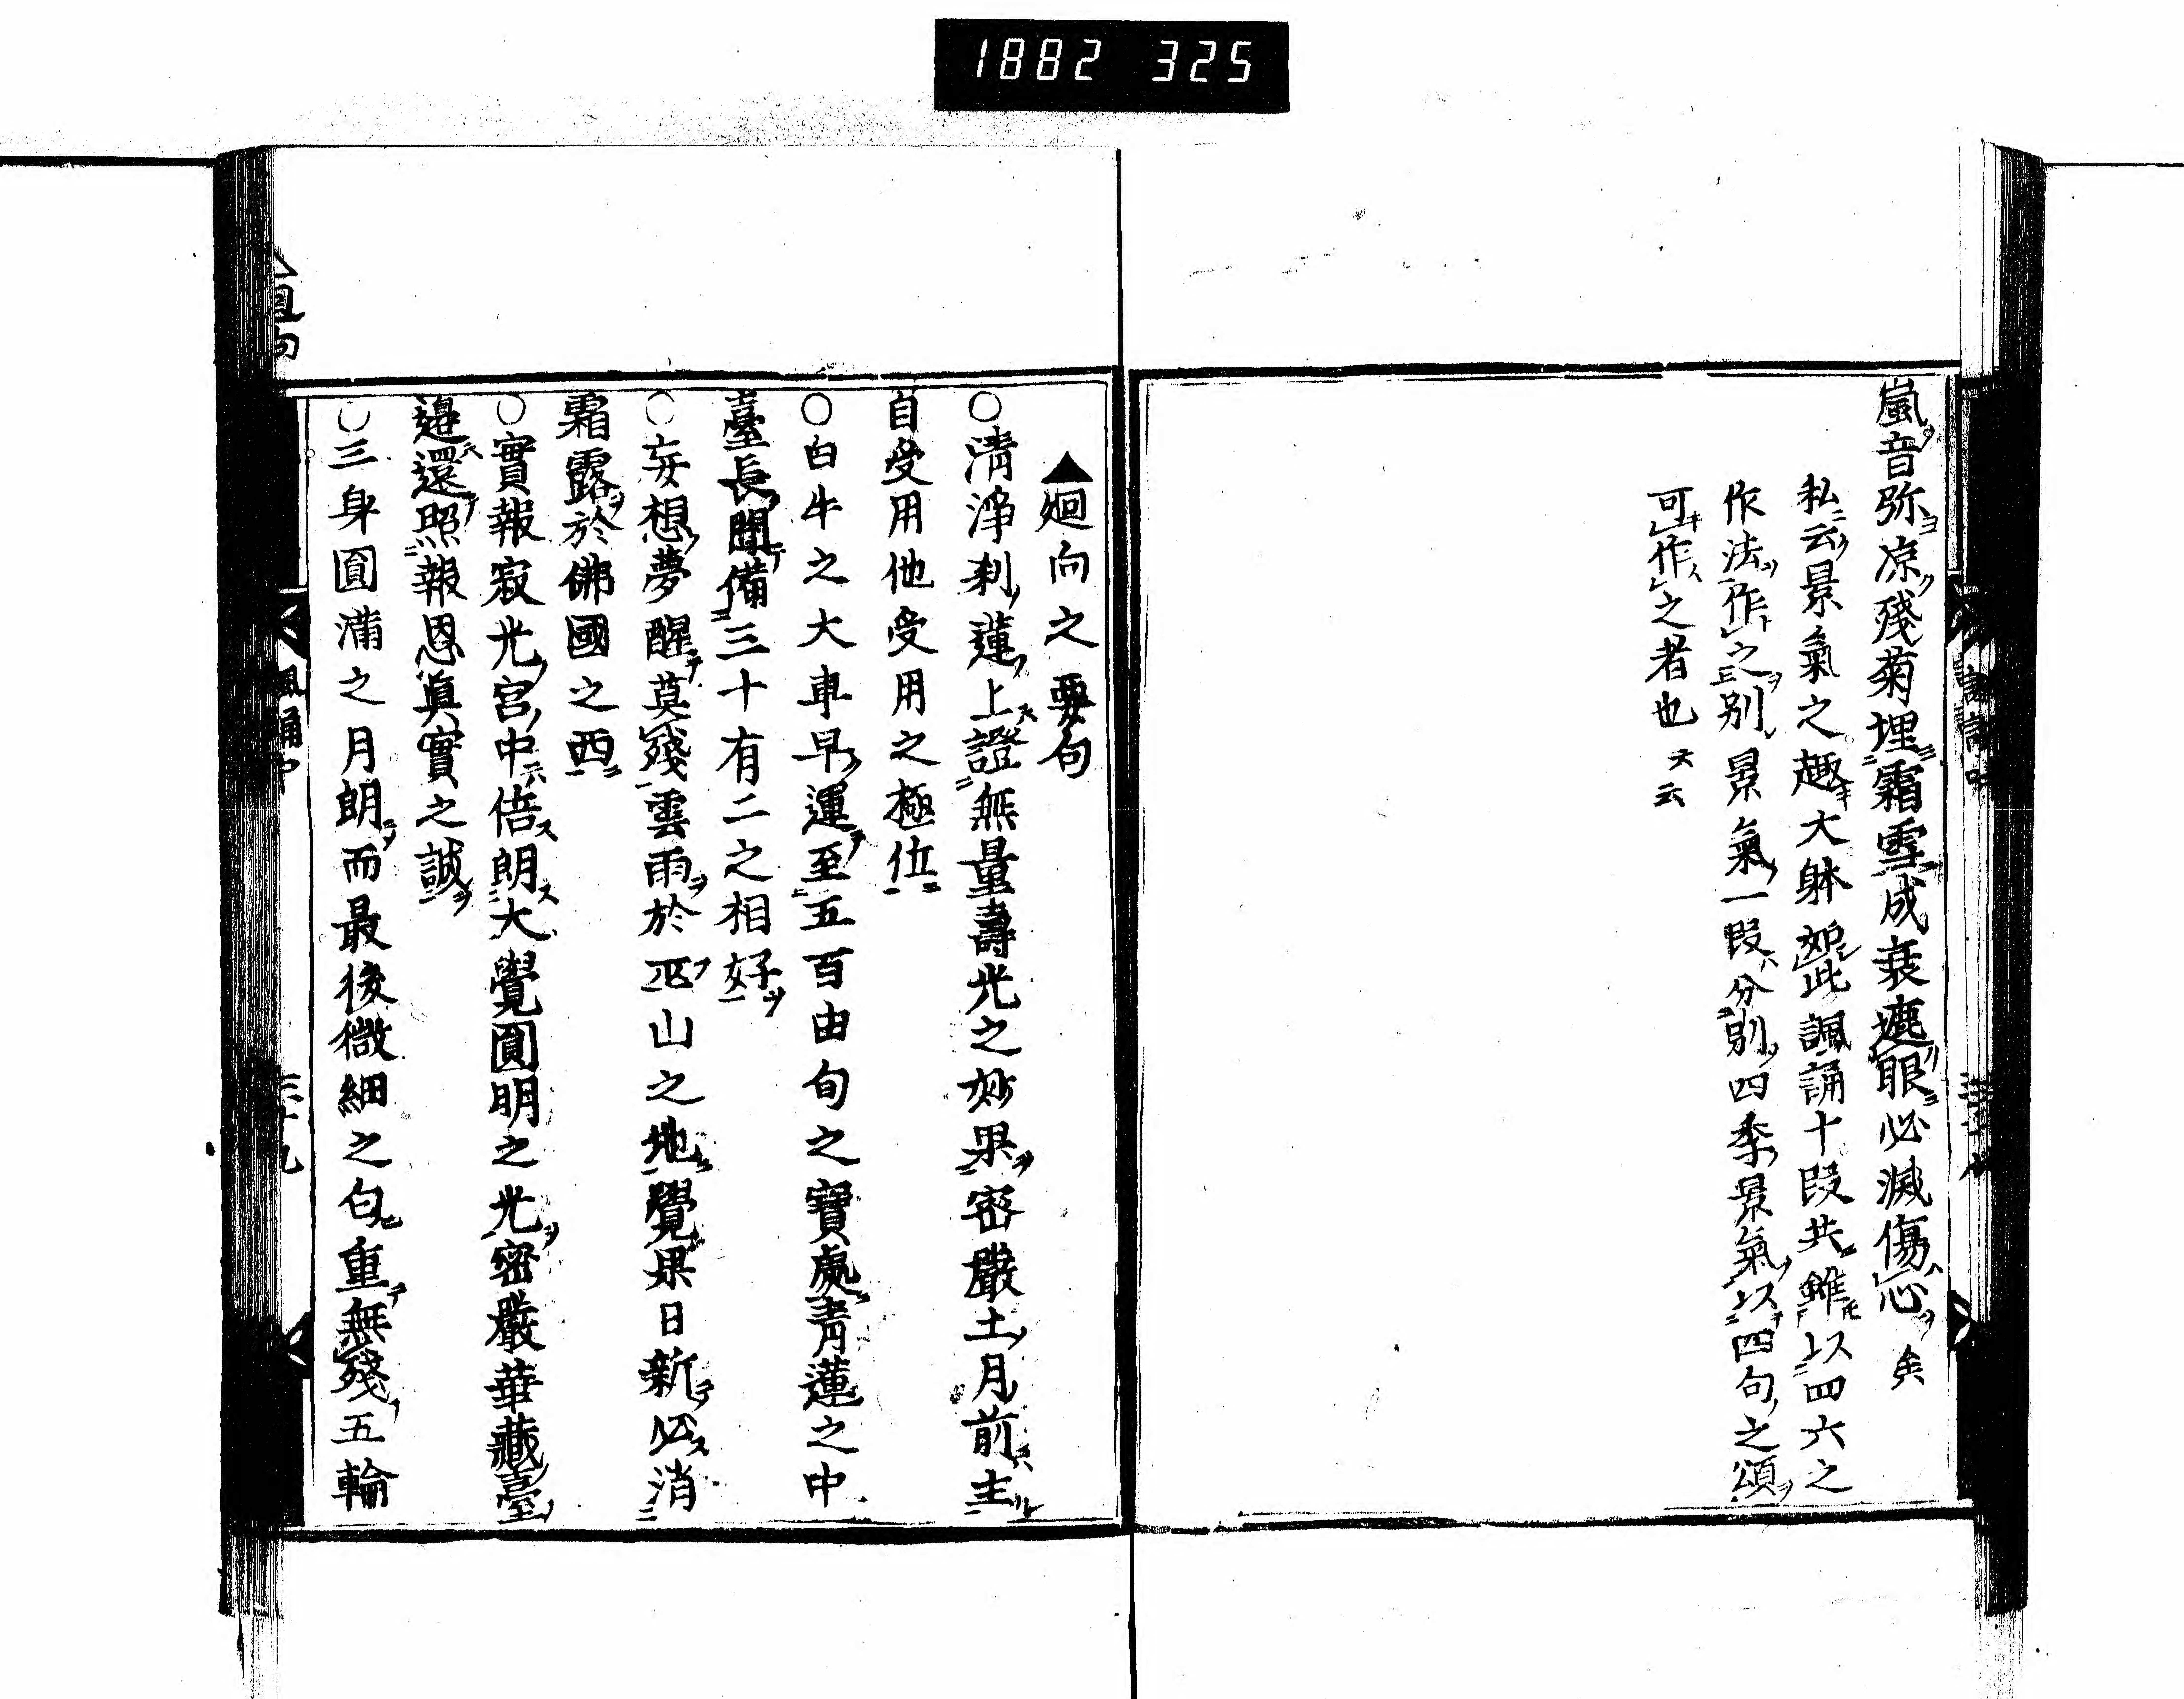 1882 325
嵐音弥凉殘菊埋霜雪成衰遮眼必滅傷心 矣
私云景氣之趣大躰如此諷誦十段共雖以四六之
作法作之別景氣一段分別四季景氣以四句之頌
可作之者也 文云
▲廻向之要句
〇清淨刹蓮上證無量壽光之妙果密嚴土月前主
自受用他受用之極位
〇白牛之大車早運至五百由旬之寶處青蓮之中
臺長開備三十有二之相好
〇妄想夢醒莫殘雲雨於巫山之地覺果日新必消
霜露於佛國之西
〇實報寂光宮中倍朗大覺圓明之光密嚴華藏臺
邊還照報恩眞實之誠
〇三身圓滿之月朗而最後微細之匂重無殘五輪